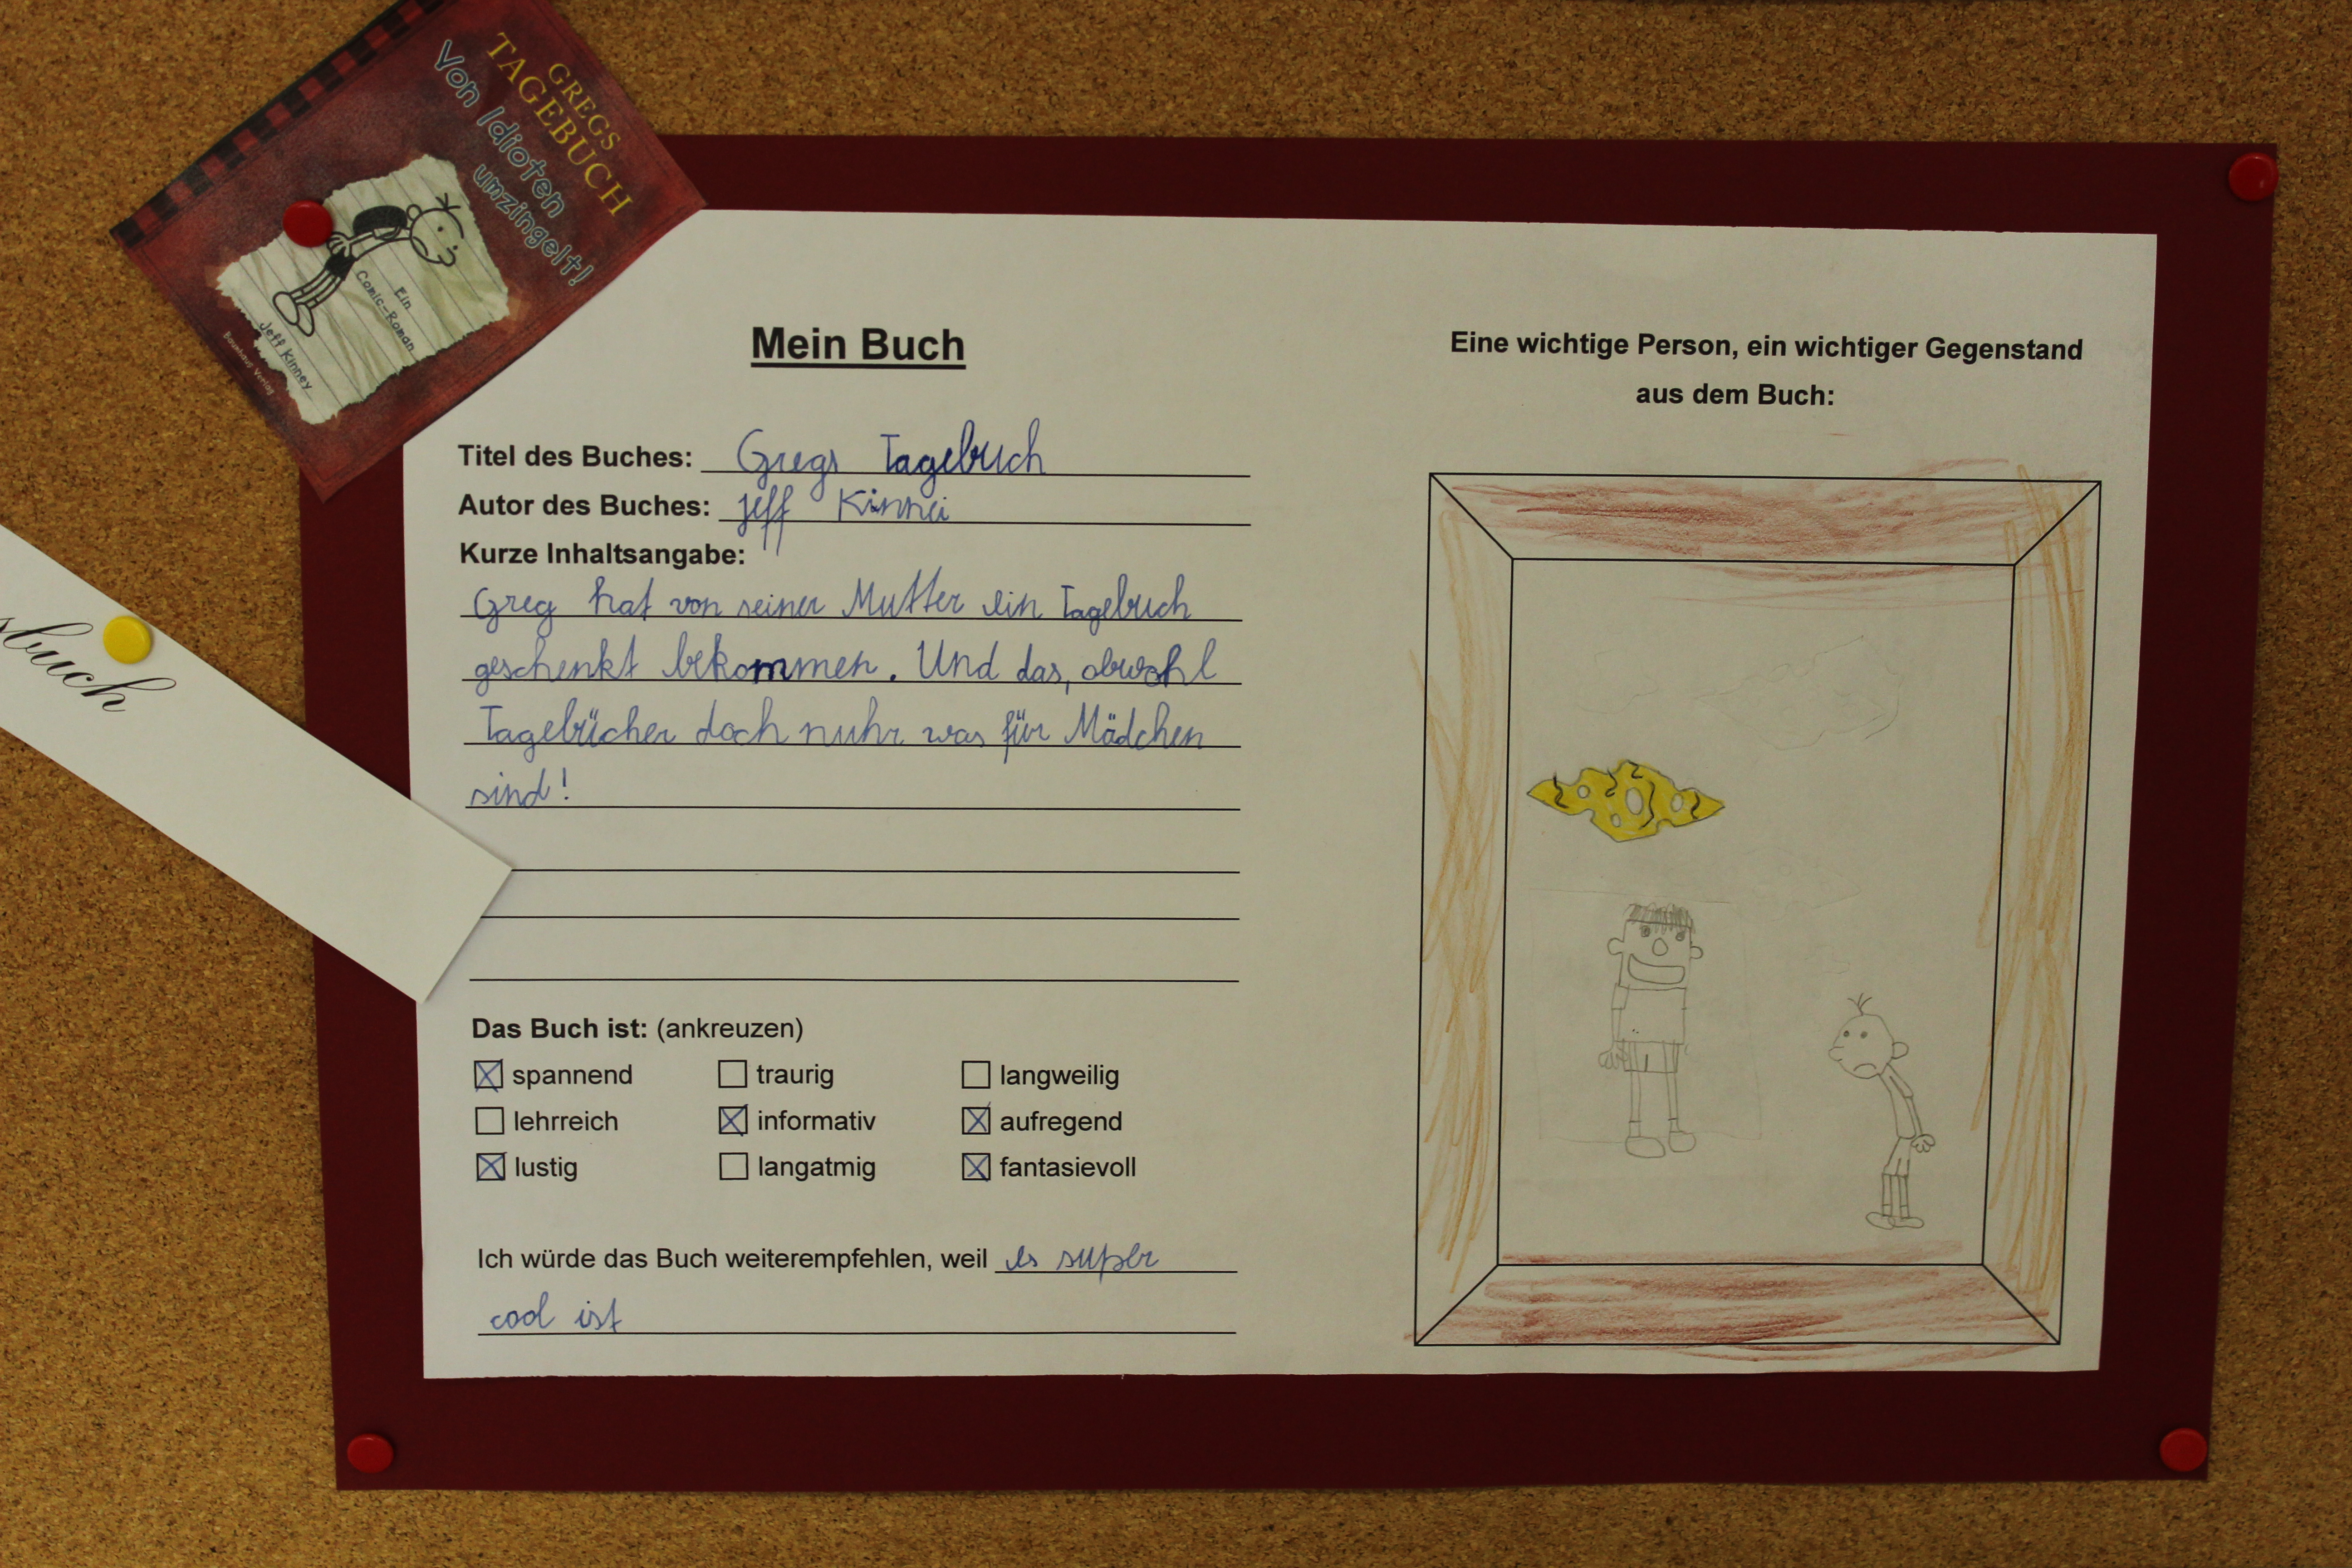 GREGS
TAGEBUCH
Von Idioten
umzingelt!
Ein
Comic-Roman
Jeff Kinney
Baumhaus Verlag
sbuch
Mein Buch
Titel des Buches: Gregs Tagebuch
Autor des Buches: Jeff Kinnei
Kurze Inhaltsangabe:
Greg hat von seiner Mutter ein Tagebuch
geschenkt bekommen. Und das, obwohl
Tagebücher doch nuhr was für Mädchen
sind!
Das Buch ist: (ankreuzen)
spannend traurig langweilig
lehrreich informativ aufregend
lustig langatmig fantasievoll
Ich würde das Buch weiterempfehlen, weil es super
cool ist
Eine wichtige Person, ein wichtiger Gegenstand
aus dem Buch: